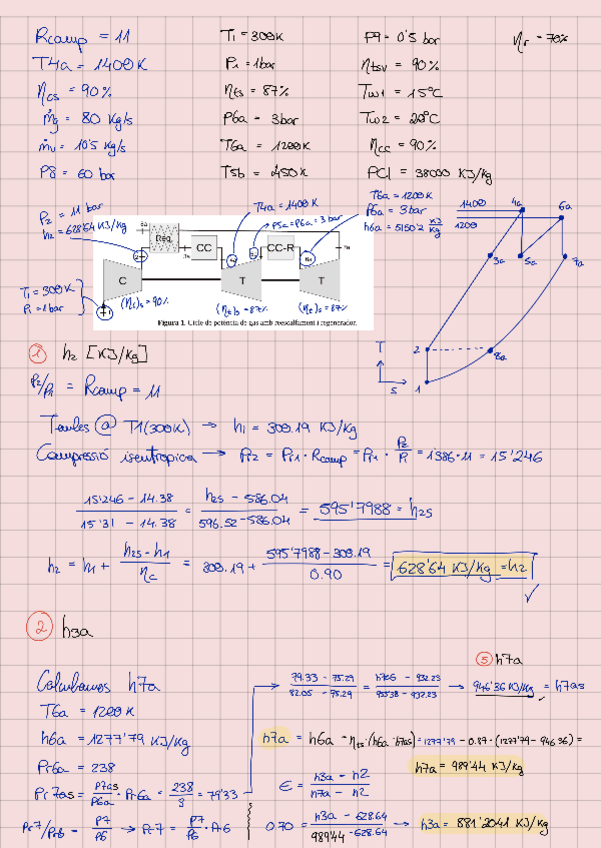 Rcomp = 11
T4a = 1400 K
ηcs = 90%
ṁg = 80 Kg/s
ṁv = 10'5 Kg/s
P8 = 60 bar
T1 = 300K
P1 = 1bar
ηts = 87%
P6a = 3bar
T6a = 1200K
T5b = 450K
P9 = 0'5 bar
ηtsv = 90%
Tw1 = 15°C
Tw2 = 20°C
ηcc = 90%
PCI = 38000 KJ/Kg
ηr = 70%
P2 = 11 bar
h2 = 628'64 KJ/Kg
T4a = 1400K
P5a = P6a = 3 bar
T6a = 1200K
P6a = 3 bar
h6a = 5150'2 KJ/Kg
Reg.
CC
CC-R
C
T
T
T1 = 300K
P1 = 1bar
(ηc)s = 90%
(ηt)s = 87%
(ηt)s = 87%
Figura 1. Cicle de potència de gas amb reescalfament i regenerador.
1400
1200
4a
6a
3a
5a
7a
2
8a
1
T
S
① h2 [KJ/Kg]
P2/P1 = Rcomp = 11
Taules @ T1(300K) → h1 = 300.19 KJ/Kg
Compressió isentropica → Pr2 = Pr1 · Rcomp = Pr1 · P2/P1 = 1'386·11 = 15'246
15'246 - 14.38 / 15'31 - 14.38 = h2s - 586.04 / 596.52 - 586.04 = 595'7988 = h2s
h2 = h1 + h2s - h1 / ηc = 300.19 + 595'7988 - 300.19 / 0.90 = 628'64 KJ/Kg = h2
② h3a
Calculamos h7a
T6a = 1200 K
h6a = 1277'79 KJ/Kg
Pr6a = 238
Pr7as = P7as/P6a · Pr6a = 238/3 = 79'33
Pr7/Pr6 = P7/P6 → Pr7 = P7/P6 · Pr6
⑤ h7a
79.33 - 75.29 / 82.05 - 75.29 = h7as - 932.93 / 955.38 - 932.93 → 946'36 KJ/Kg = h7as
h7a = h6a - ηts·(h6a - h7as) = 1277'79 - 0.87·(1277'79 - 946'36) =
h7a = 989'44 KJ/Kg
ε = h3a - h2 / h7a - h2
0.70 = h3a - 628.64 / 989'44 - 628.64 → h3a = 881'2041 KJ/Kg